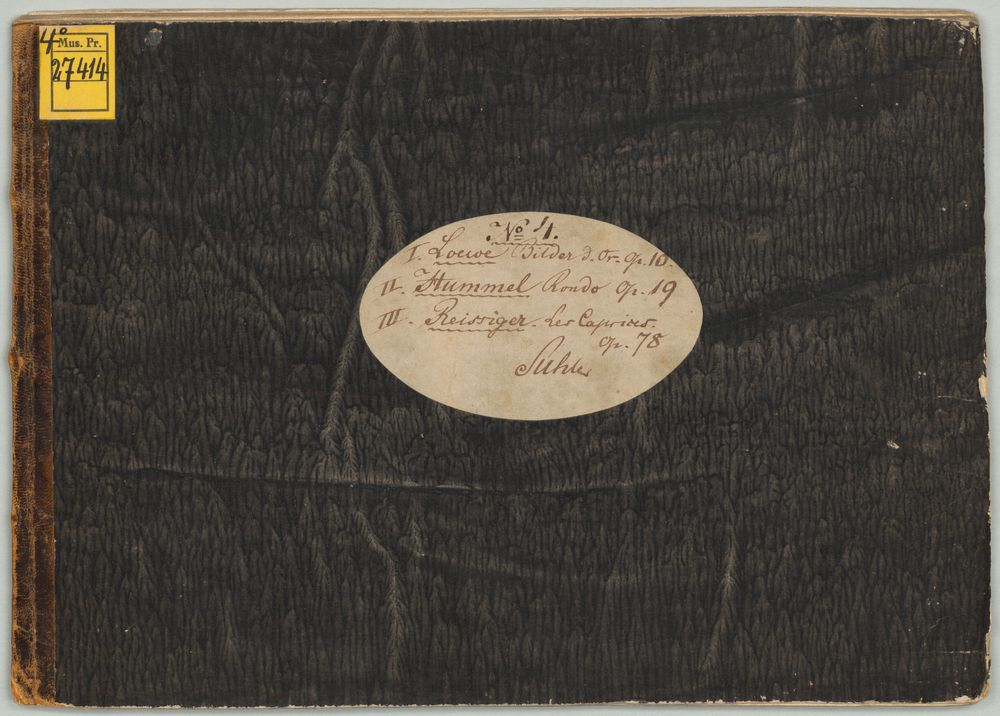 4° Mus. Pr.
27414
No 4.
I. Loewe Bilder d. Or. Op. 10.
II. Hummel Rondo Op. 19
III. Reissiger. Les Caprices.
Op. 78